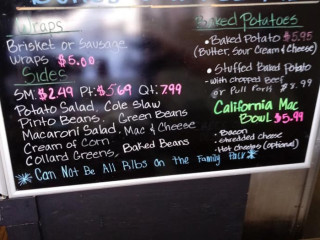 Wraps
Brisket or Sausage
Wraps $5.00
Sides
SM: $2.49 Pt: $5.69 Qt: 7.99
Potato Salad, Cole Slaw
Pinto Beans, Green Beans
Macaroni Salad, Mac & Cheese
Cream of Corn
Collard Greens, Baked Beans
*Can Not Be All Ribs on the Family Pack*
Baked Potatoes
• Baked Potato $5.95
(Butter, Sour Cream & Cheese)
• Stuffed Baked Potato
with chopped Beef
or Pull Pork $8.99
California Mac
Bowl $5.99
• Bacon
• Shredded cheese
• Hot Cheetos (optional)